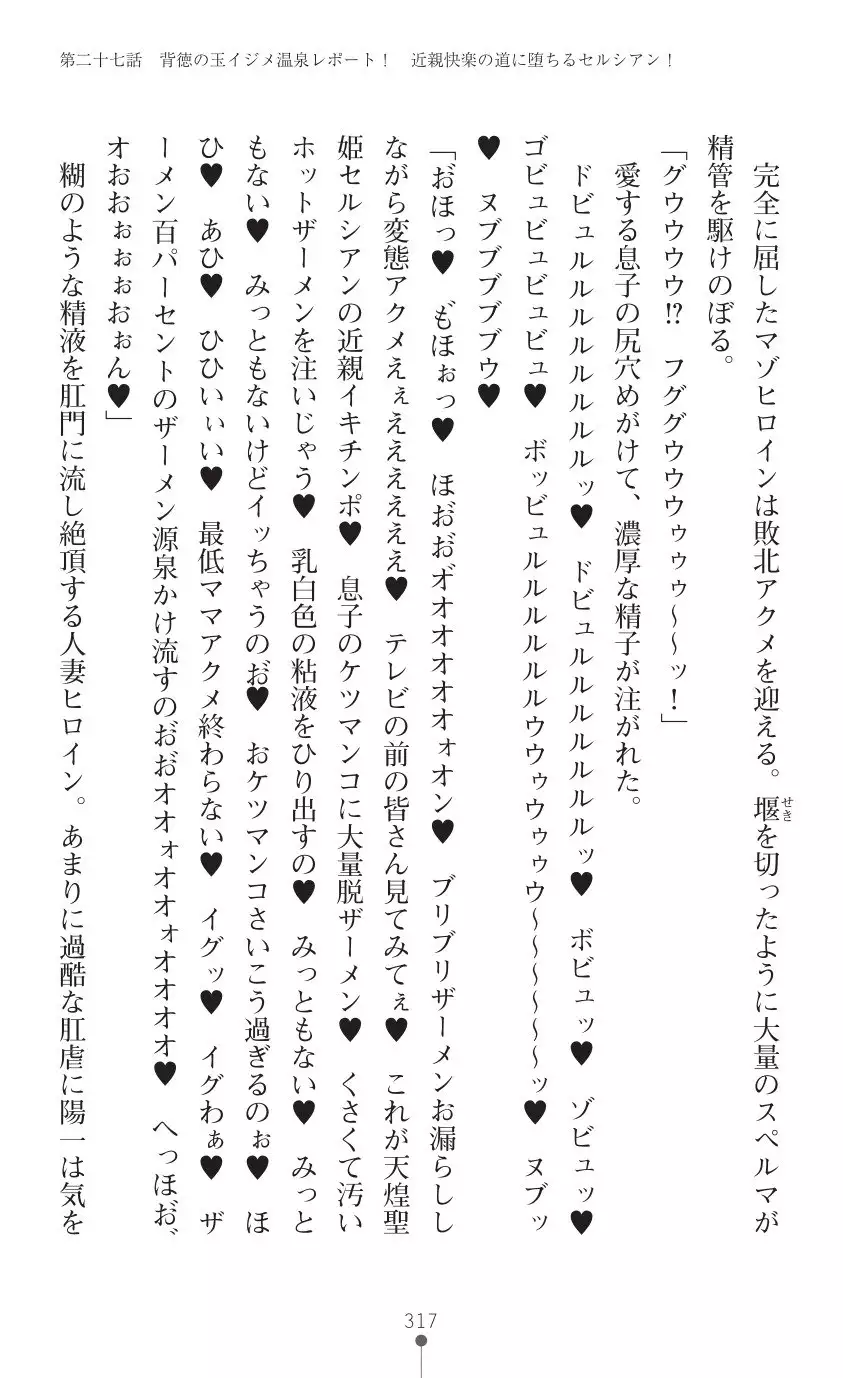 第二十七話　背徳の玉イジメ温泉レポート！　近親快楽の道に堕ちるセルシアン！
　完全に屈したマゾヒロインは敗北アクメを迎える。堰を切ったように大量のスペルマが
せき
精管を駆けのぼる。
「グウウウウ!?　フググウウウゥゥゥ～～ッ！」
　愛する息子の尻穴めがけて、濃厚な精子が注がれた。
　ドビュルルルルルルルルッ♥　ドビュルルルルルルルッ♥　ボビュッ♥　ゾビュッ♥
ゴビュビュビュビュ♥　ボッビュルルルルルルウウゥウゥゥウ～～～～～～ッ♥　ヌブッ
♥　ヌブブブブブゥ♥
「お゛ほっ♥　も゛ほぉっ♥　ほお゛お゛オ゛オオオオオォオン♥　ブリブリザーメンお漏らしし
ながら変態アクメえぇえええええええ♥　テレビの前の皆さん見てみてぇ♥　これが天煌聖
姫セルシアンの近親イキチンポ♥　息子のケツマンコに大量脱ザーメン♥　くさくて汚い
ホットザーメンを注いじゃう♥　乳白色の粘液をひり出すの♥　みっともない♥　みっと
もない♥　みっともないけどイッちゃうのお゛♥　おケツマンコさいこう過ぎるのぉ♥　ほ
ひ♥　あひ♥　ひひいぃい♥　最低ママアクメ終わらない♥　イグッ♥　イグわぁ♥　ザ
ーメン百パーセントのザーメン源泉かけ流すのお゛お゛オオォオオォオオオオ♥　へっほお゛、
オおおぉぉぉおぉん♥」
　糊のような精液を肛門に流し絶頂する人妻ヒロイン。あまりに過酷な肛虐に陽一は気を
317